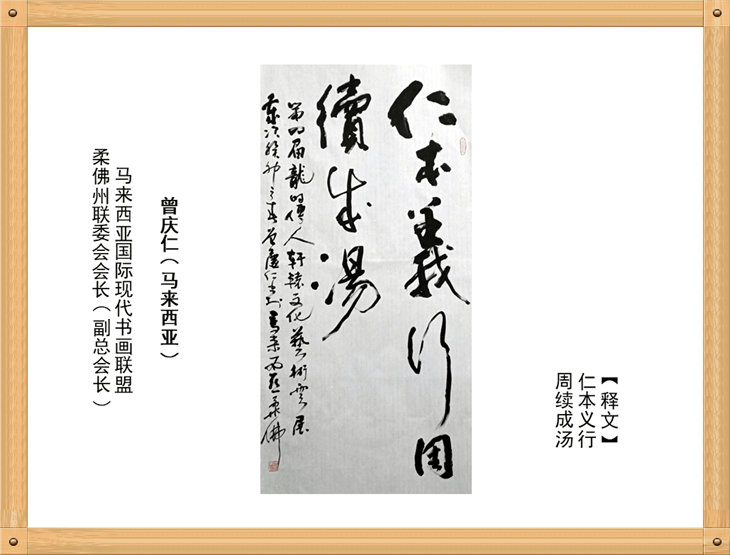 【释文】
仁本义行
周续成汤
仁本義行周
續成湯
第四届龍的傳人軒轅文化藝術雲展
歲次癸卯之春曾慶仁書於馬來西亞柔佛
曾庆仁（马来西亚）
马来西亚国际现代书画联盟
柔佛州联委会会长（副总会长）